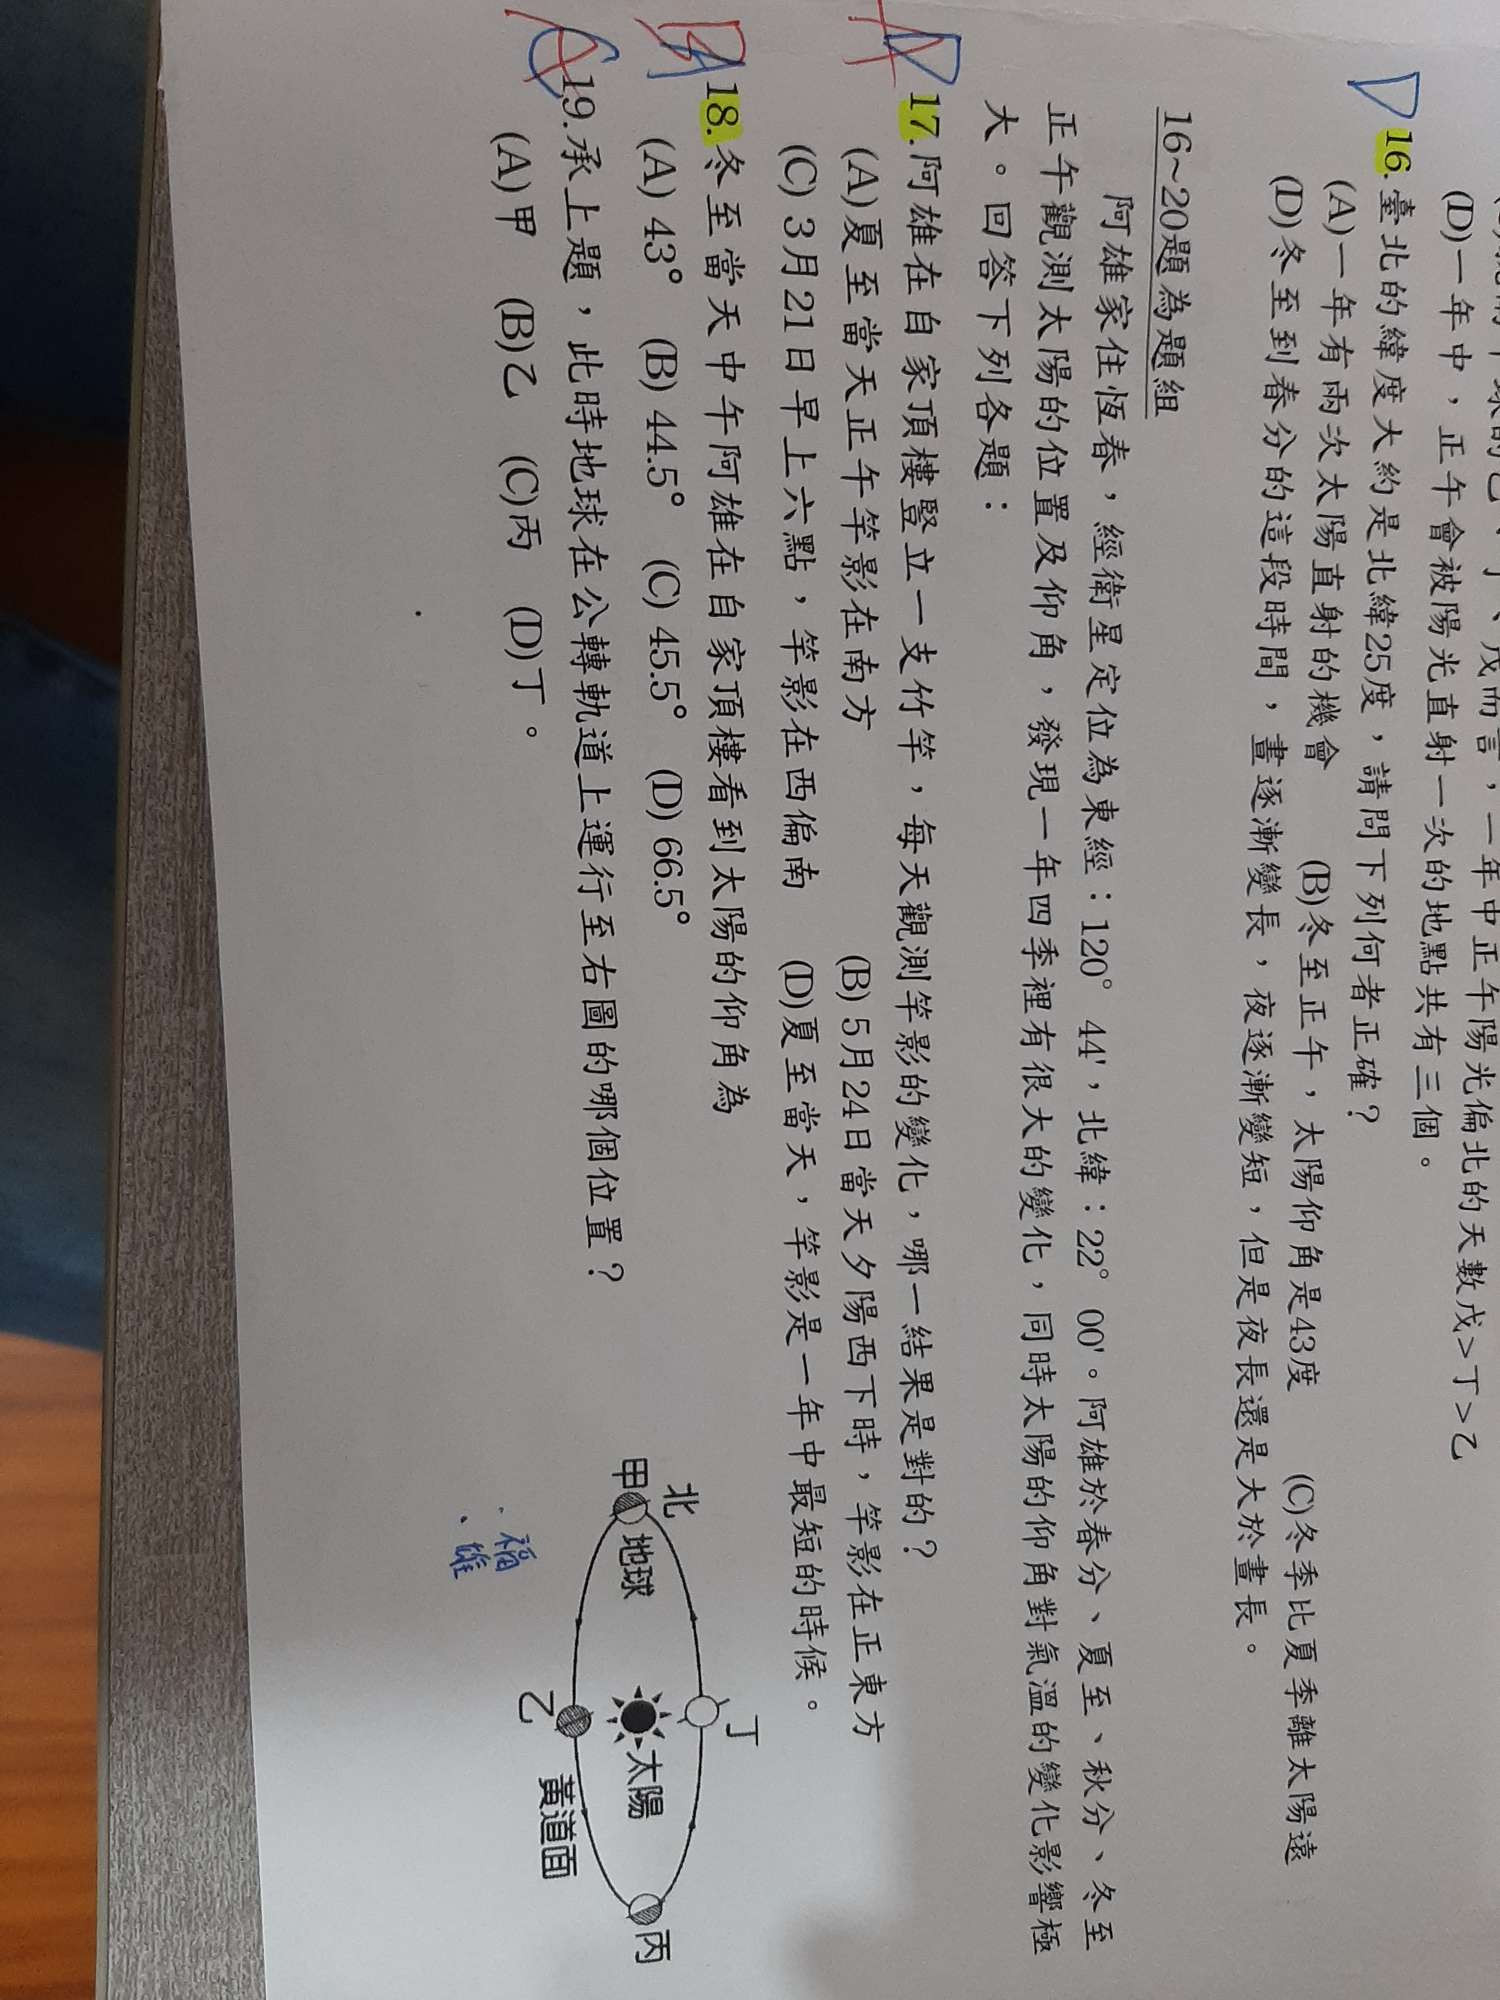 (D)一年中，正午會被陽光直射一次的地點共有三個。
D 16.臺北的緯度大約是北緯25度，請問下列何者正確？
(A)一年有兩次太陽直射的機會 (B)冬至正午，太陽仰角是43度 (C)冬季比夏季離太陽遠
(D)冬至到春分的這段時間，晝逐漸變長，夜逐漸變短，但是夜長還是大於晝長。
16~20題為題組
阿雄家住恆春，經衛星定位為東經：120° 44'，北緯：22° 00'。阿雄於春分、夏至、秋分、冬至
正午觀測太陽的位置及仰角，發現一年四季裡有很大的變化，同時太陽的仰角對氣溫的變化影響極
大。回答下列各題：
17.阿雄在自家頂樓豎立一支竹竿，每天觀測竿影的變化，哪一結果是對的？
(A)夏至當天正午竿影在南方 (B) 5月24日當天夕陽西下時，竿影在正東方
(C) 3月21日早上六點，竿影在西偏南 (D)夏至當天，竿影是一年中最短的時候。
18.冬至當天中午阿雄在自家頂樓看到太陽的仰角為
(A) 43° (B) 44.5° (C) 45.5° (D) 66.5°
19.承上題，此時地球在公轉軌道上運行至右圖的哪個位置？
(A)甲 (B)乙 (C)丙 (D)丁。
北
甲
地球
丁
太陽
乙
黃道面
丙
福
雄